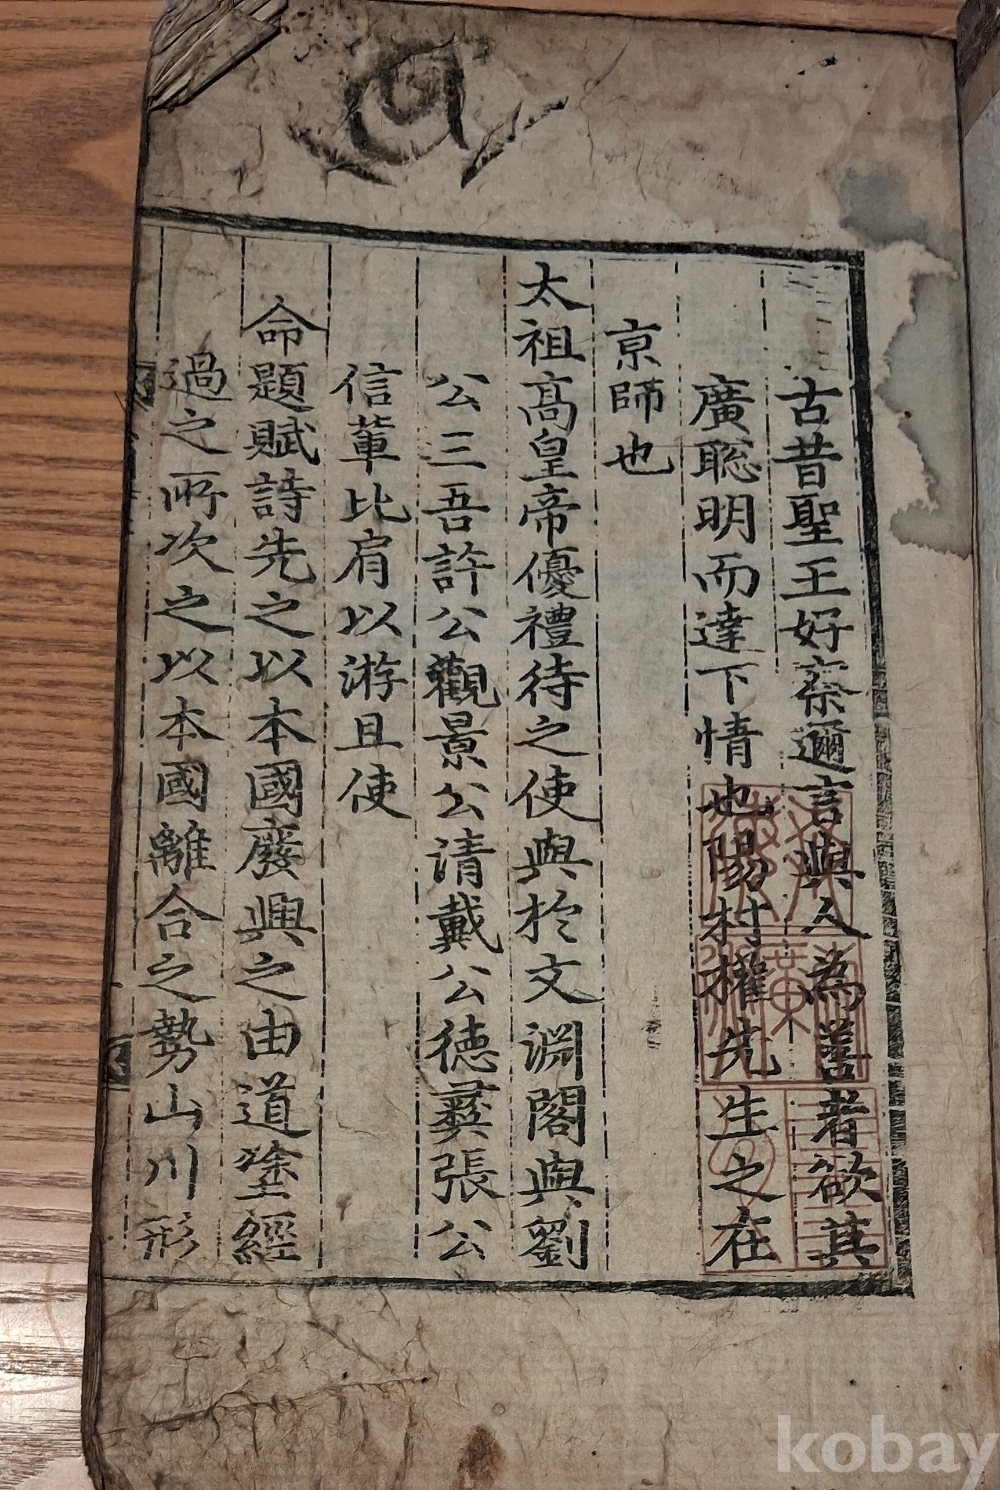 古昔聖王好察邇言與人為善者欲其
廣聡明而達下情也陽村權先生之在
京師也
太祖高皇帝優禮待之使與於文淵閣與劉
公三吾許公觀景公清戴公德彛張公
信軰比肩以游且使
命題賦詩先之以本國廢興之由道塗經
過之所次之以本國離合之勢山川形
kobay